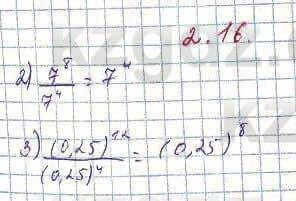 2.16.
2) 7⁸/7⁴ = 7⁴
3) (0,25)¹²/(0,25)⁴ = (0,25)⁸